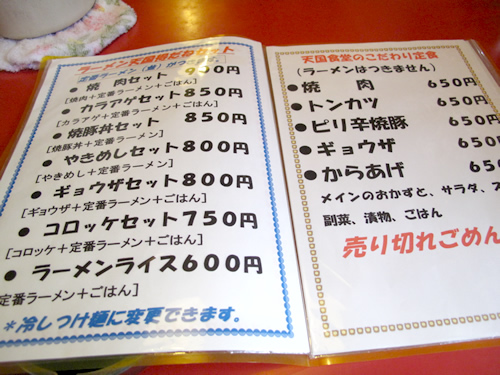 ラーメン天国得だねセット
定番ラーメン(麦)がつ
● 焼 肉セット 900円
[焼肉+定番ラーメン+ごはん]
● カラアゲセット850円
[カラアゲ+定番ラーメン+ごはん]
● 焼豚丼セット 850円
[焼豚丼+定番ラーメン]
● やきめしセット800円
[やきめし+定番ラーメン]
● ギョウザセット800円
[ギョウザ+定番ラーメン+ごはん]
● コロッケセット750円
[コロッケ+定番ラーメン+ごはん]
● ラーメンライス600円
定番ラーメン+ごはん]
*冷しつけ麺に変更できます.
天国食堂のこだわり定食
(ラーメンはつきません)
● 焼 肉 650円
● トンカツ 650円
● ピリ辛焼豚 650円
● ギョウザ 650円
● からあげ 650
メインのおかずと、サラダ、
副菜、漬物、ごはん
売り切れごめん